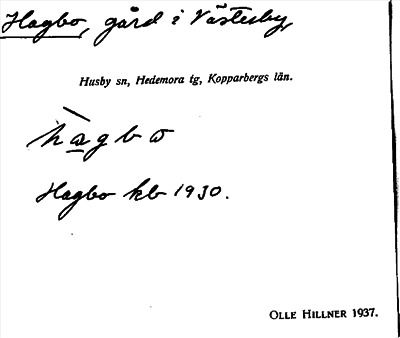 Hagbo, gård i Västerby,
Husby sn, Hedemora tg, Kopparbergs län.
hagbo
Hagbo kb 1930.
OLLE HILLNER 1937.